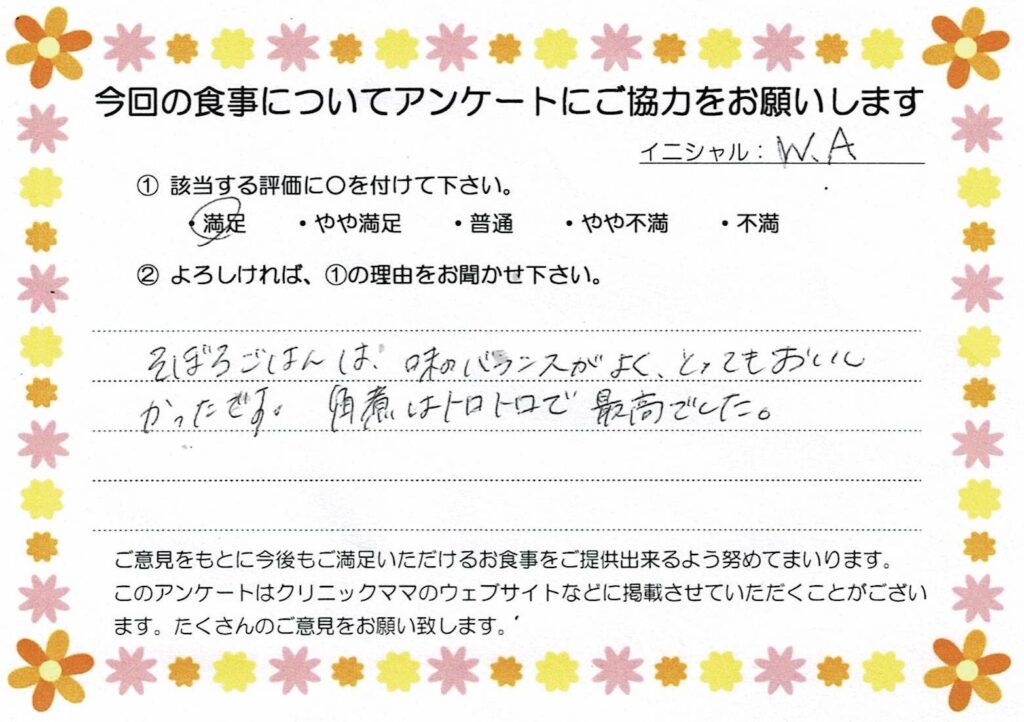 今回の食事についてアンケートにご協力をお願いします
イニシャル： W.A
① 該当する評価に〇を付けて下さい。
・満足 ・やや満足 ・普通 ・やや不満 ・不満
② よろしければ、①の理由をお聞かせ下さい。
そぼろごはんは、味のバランスがよく、とってもおいし
かったです。角煮はトロトロで最高でした。
ご意見をもとに今後もご満足いただけるお食事をご提供出来るよう努めてまいります。
このアンケートはクリニックママのウェブサイトなどに掲載させていただくことがござい
ます。たくさんのご意見をお願い致します。